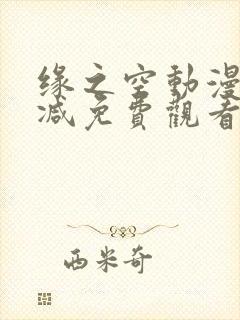 缘之空動漫
减免費觀看
西米奇